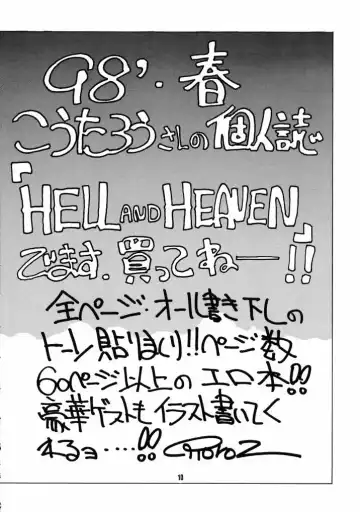 98'・春
こうたろうさんの個人誌
『HELL AND HEAVEN』
でます。買ってねー!!
全ページ・オール書き下しの
トーン貼りまくり!!ページ数
60ページ以上のエロ本!!
豪華ゲストもイラスト書いてく
れるヨ・・・・!!
10